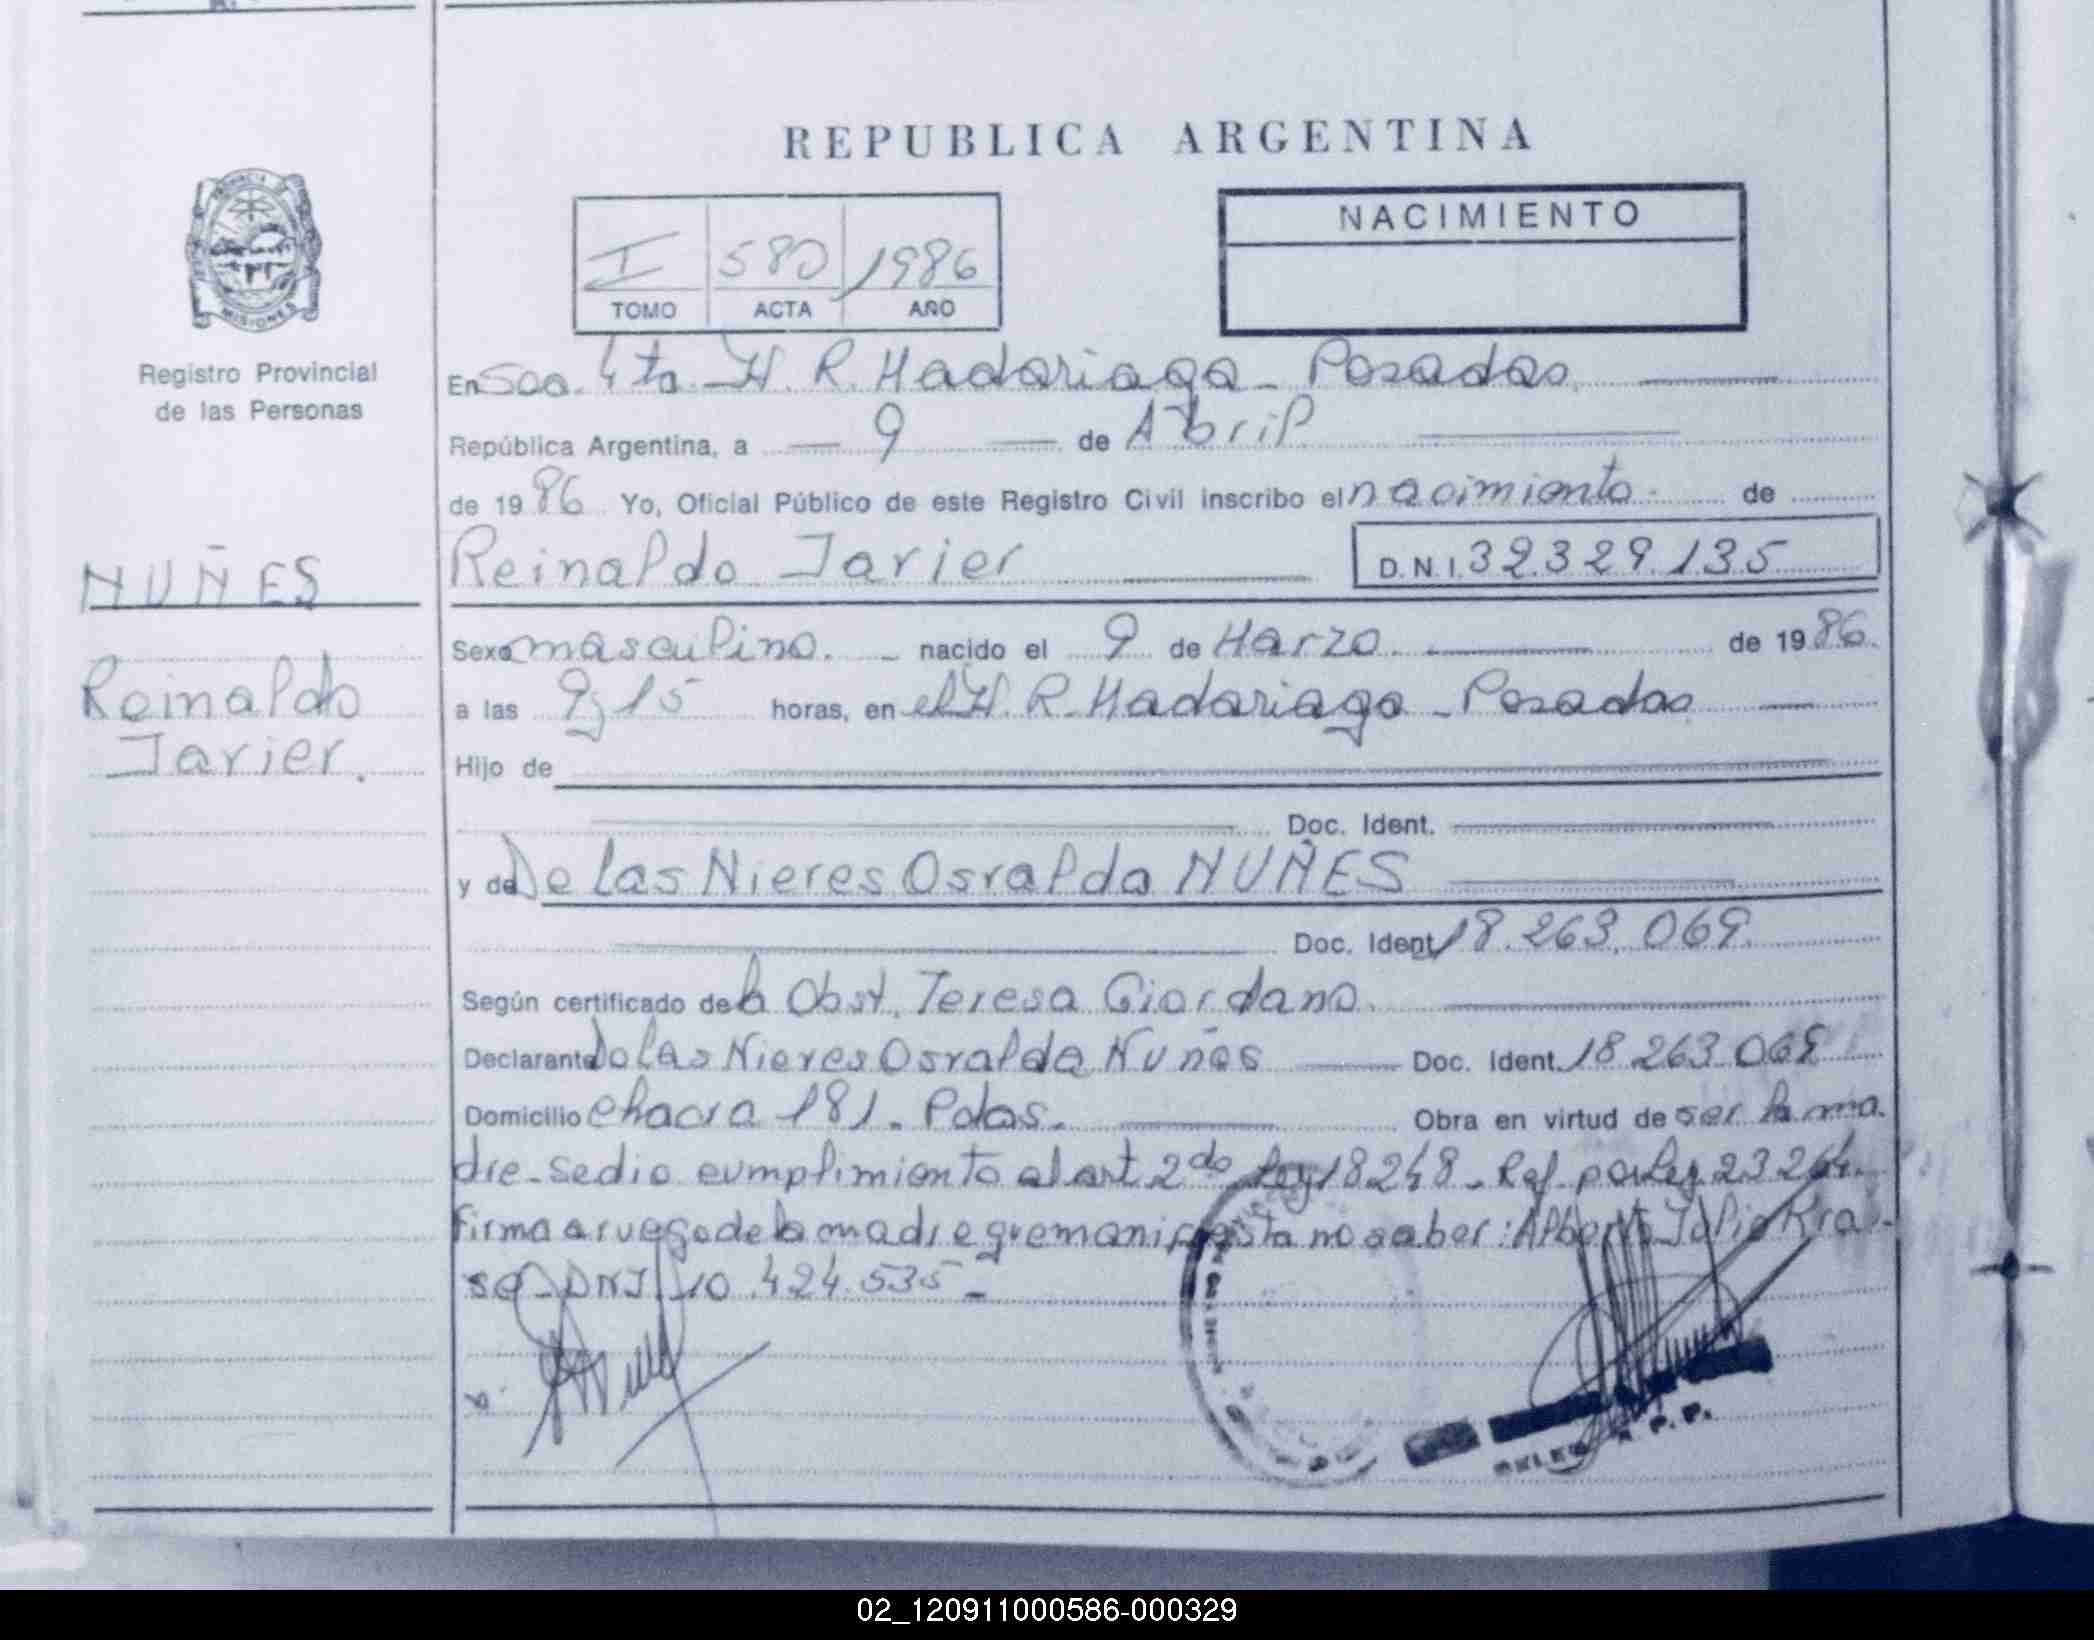 REPUBLICA ARGENTINA
PROVINCIA DE
MISIONES
Registro Provincial
de las Personas
I 580 1986
TOMO ACTA AÑO
NACIMIENTO
En Scc. 4ta. H. R. Madariaga - Posadas
República Argentina, a 9 de Abril
de 1986 Yo, Oficial Público de este Registro Civil inscribo el nacimiento de
Reinaldo Javier D.N.I. 32.329.135
NUÑES
Reinaldo
Javier.
Sexo masculino. nacido el 9 de Marzo. de 1986.
a las 9,15 horas, en el H. R. Madariaga - Posadas
Hijo de
Doc. Ident.
y de De las Nieves Osvalda NUÑES
Doc. Ident. 18.263.069.
Según certificado de la Obst. Teresa Giordano.
Declarante De las Nieves Osvalda Nuñes Doc. Ident. 18.263.069
Domicilio chacra 181. Pdas. Obra en virtud de ser la ma.
dre - se dio cumplimiento al art 2do Ley 18248 - Ref. por Ley 23264.
firma a ruego de la madre que manifiesta no saber: Alberto Julio Kra.
se DNI 10.424.535 -
02_120911000586-000329